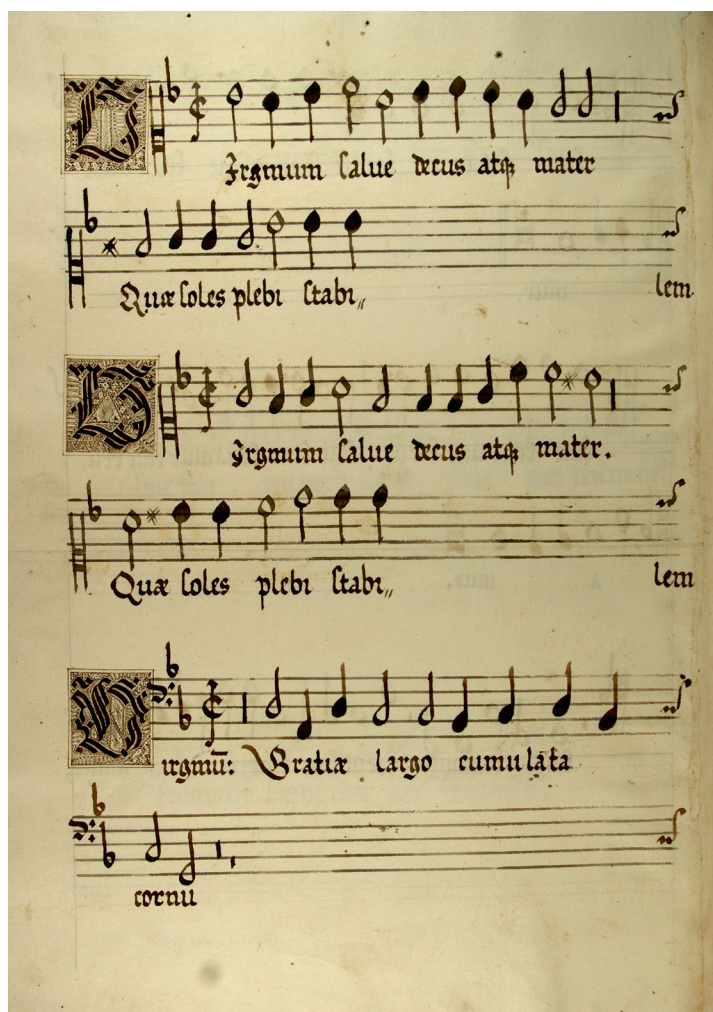 Virginum salue decus atq mater
Quæ soles plebi stabi„ lem
Virginum salue decus atq mater.
Quæ soles plebi stabi„ lem
Virginū: Gratiæ largo cumulata
cornu